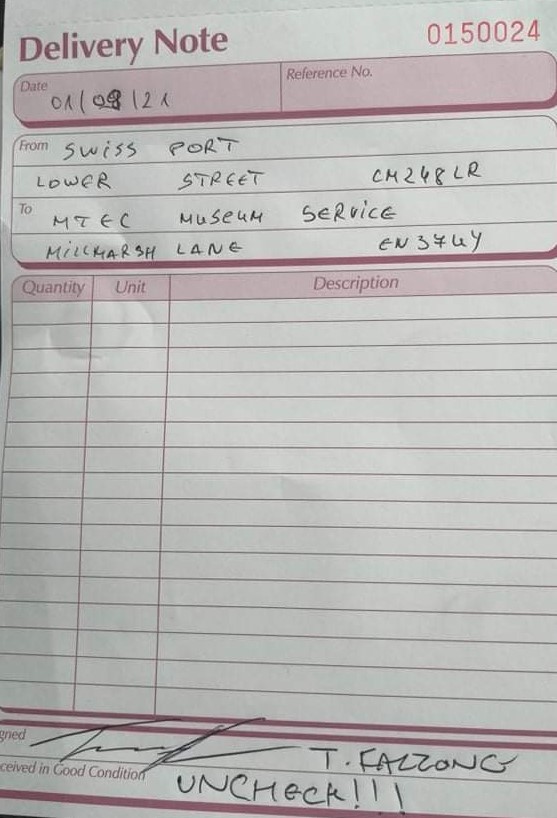 Delivery Note 0150024
Date Reference No.
01/09/21
From SWISS PORT
LOWER STREET CM248LR
To MTEC MUSEUM SERVICE
MILLMARSH LANE EN37UY
Quantity Unit Description
gned T. FALZONG
ceived in Good Condition UNCHECK!!!